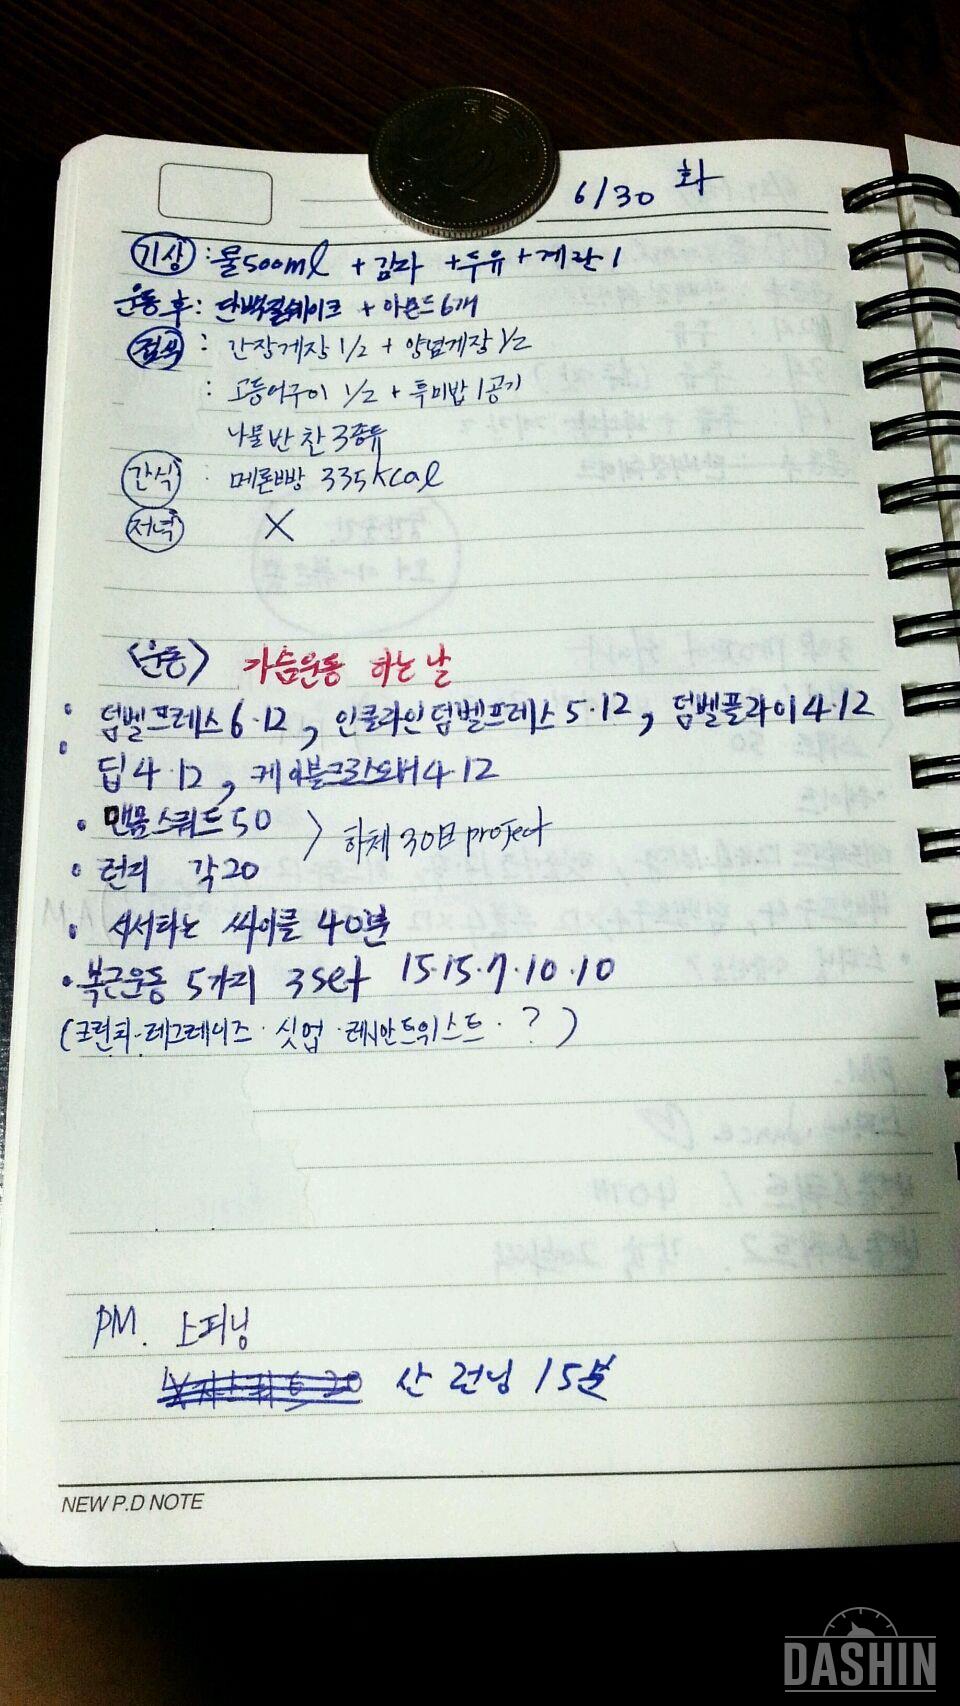 6/30 화
기상 : 물500ml + 감자 + 두유 + 계란 1
운동 후 : 단백질쉐이크 + 아몬드 6개
점심 : 간장게장 1/2 + 양념게장 1/2
: 고등어구이 1/2 + 흑미밥 1공기
나물반찬 3종류
간식 : 메론빵 335kcal
저녁 X
<운동> 가슴운동 하는 날
• 덤벨프레스 6·12, 인클라인덤벨프레스 5·12, 덤벨플라이 4·12
• 딥 4·12, 케이블크로스오버 4·12
• 맨몸스쿼트 50
> 하체 30日 project
• 런지 각20
• 서서타는 싸이클 40분
• 복근운동 5가지 3set 15·15·7·10·10
(크런치·레그레이즈·싯업·러시안트위스트·?)
PM. 스피닝
산 런닝 15분
NEW P.D NOTE
DASHIN